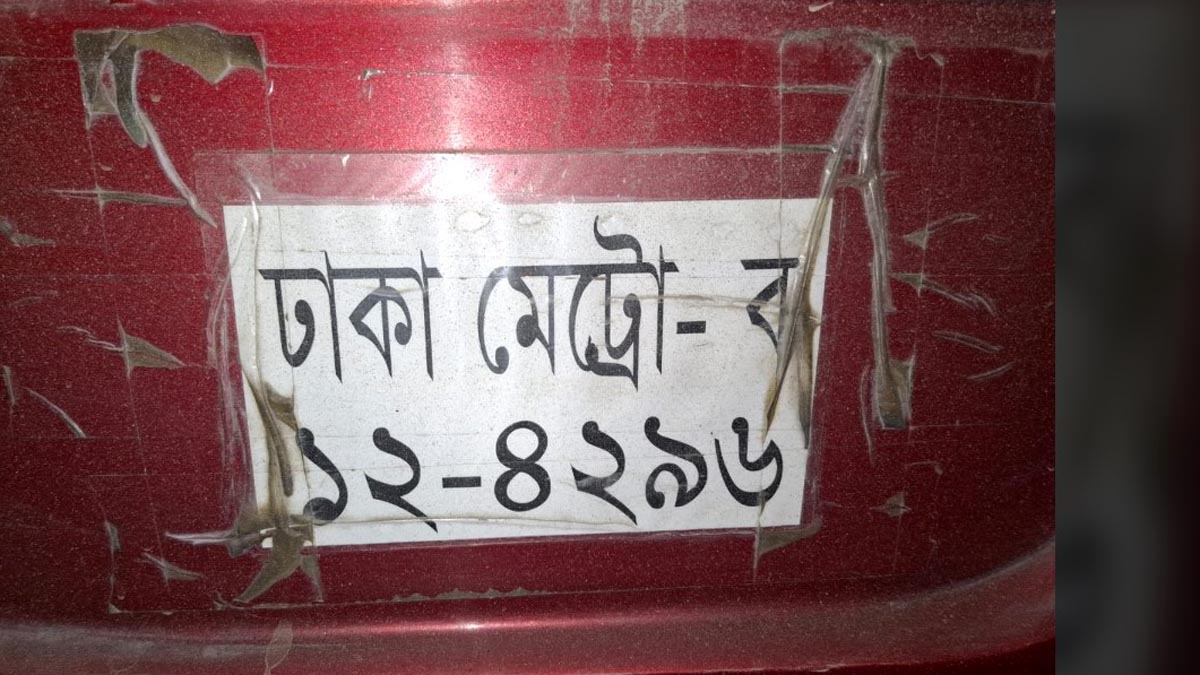 ঢাকা মেট্রো- ব
১২-৪২৯৬